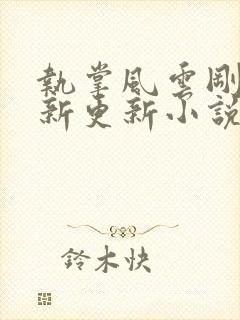 執掌風雲剛
新更新小説
鈴木快